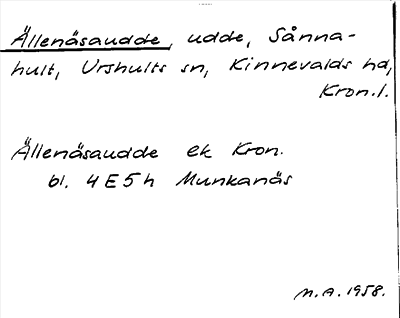 Ällenäsaudde, udde, Sånna-
hult, Urshults sn, Kinnevalds hd,
Kron.l.
Ällenäsaudde ek Kron.
bl. 4E5h Munkanäs
M.A. 1958.